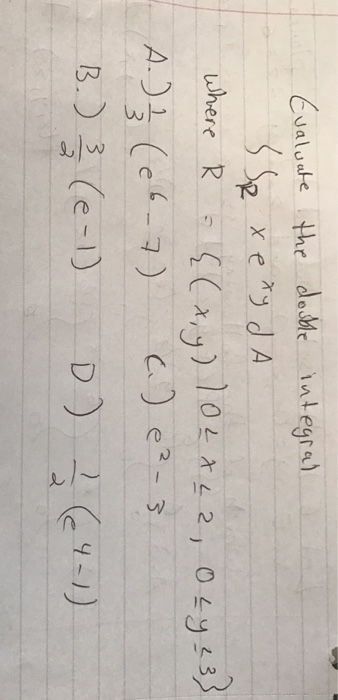 Evaluate the double integral
∫∫_R x e^xy dA
where R = {(x,y) | 0 ≤ x ≤ 2, 0 ≤ y ≤ 3}
A.) 1/3 (e^6 - 7) C.) e^2 - 3
B.) 3/2 (e-1) D) 1/2 (e^4 - 1)